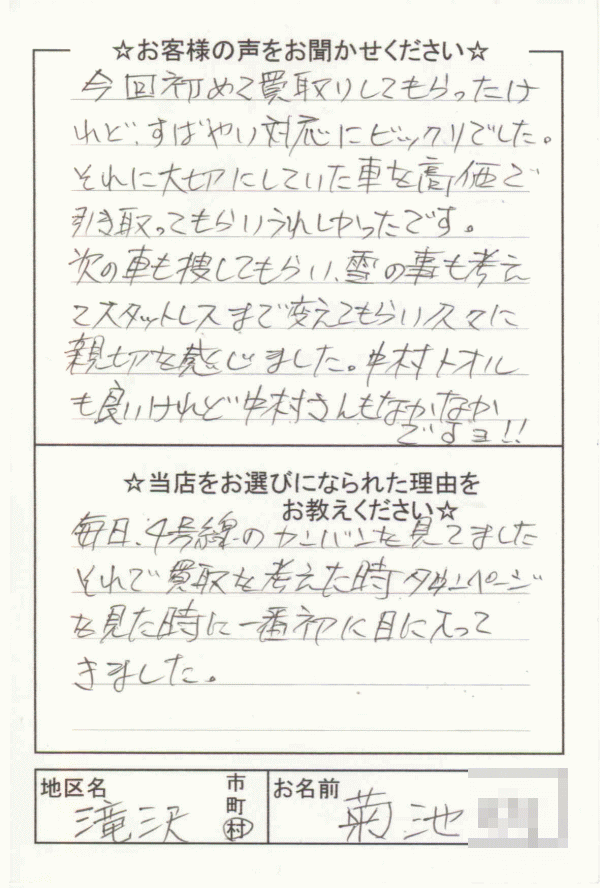 ☆お客様の声をお聞かせください☆
今回初めて買取りしてもらったけ
れど、すばやい対応にビックリでした。
それに大切にしていた車を高価で
引き取ってもらいうれしかったです。
次の車も捜してもらい、雪の事も考え
てスタットレスまで変えてもらい久々に
親切を感じました。中村トオル
も良いけれど中村さんもなかなか
ですヨ!!
☆当店をお選びになられた理由を
お教えください☆
毎日、4号線のカンバンを見てました
それで買取を考えた時タウンページ
を見た時に一番初に目に入って
きました。
地区名
滝沢
市
町
村
お名前
菊池